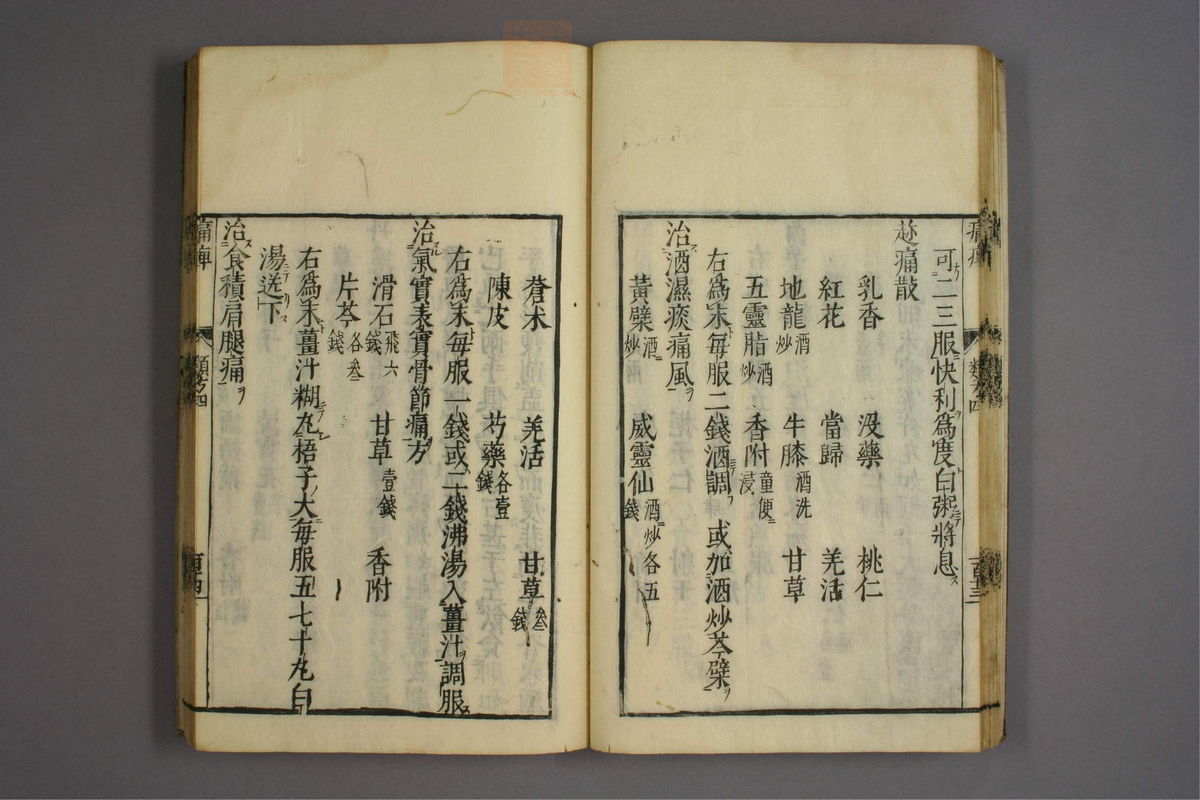 可二三服快利爲度白粥將息
趂痛散
乳香 沒藥 桃仁
紅花 當歸 羌活
地龍酒炒 牛膝酒洗 甘草
五靈脂酒炒 香附童便浸
右爲末每服二錢酒調 或加酒炒芩檗
治酒濕痰痛風
黃檗酒炒 威靈仙酒炒各五錢
蒼朮 羌活 甘草叁錢
陳皮 芍藥各壹錢
右爲末每服一錢或二錢沸湯入薑汁調服
治氣實表實骨節痛方
滑石飛六錢 甘草壹錢 香附
片芩各叁錢
右爲末薑汁糊丸梧子大每服五七十丸白
湯送下
治食積肩腿痛